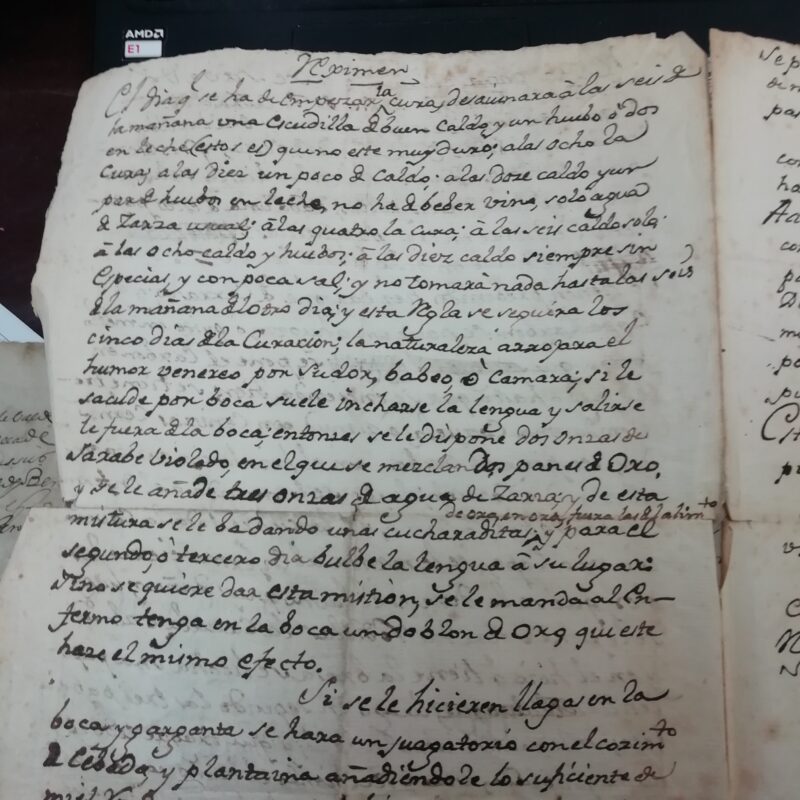 AMD
E1
Reximen
El dia q̃ se ha de empezar la cura, desaiunarà à las seis đ
la mañana una escudilla đ buen caldo, y un huebo ò dos
en leche (estos es) que no este muy duro; a las ocho la
Cura; a las diez un poco đ caldo; a las doze caldo y un
par đ huebos en leche, no ha đ beber vino, solo agua
đ Zarza usual; à las quatro la cura; à las seis caldo solo;
à las ocho caldo y huebos; à las diez caldo siempre sin
especias, y con poca sal; y no tomarà nada hasta las seis
đ la mañana đ lo otro dia; y esta Regla se seguira los
cinco dias đ la Curacion; la naturaleza arrojara el
humor venereo por Sudor, babeo, ò Camara; si le
sacude por boca suele incharse la lengua y salirse
le fuera đ la boca; entonzes se le dispone dos onzas de
Jarabe violado, en el que se mezclan dos panes đ Oro,
y se le añade tres onzas đ agua de Zarza, y de esta
mistura se le ba dando unas cucharaditas, y para el
de ora en ora, fuera las đ alim.to
segundo, ò tercero dia buelbe la lengua à su lugar:
Sino se quiere dar esta mistion, se le manda al En-
fermo tenga en la boca un doblon đ Oro, que este
haze el mismo efecto.
Si se le hicieren llagas en la
boca y garganta se hara un juagatorio con el cozim.to
đ Cebada, y plantaina añadiendole lo suficiente de
miel